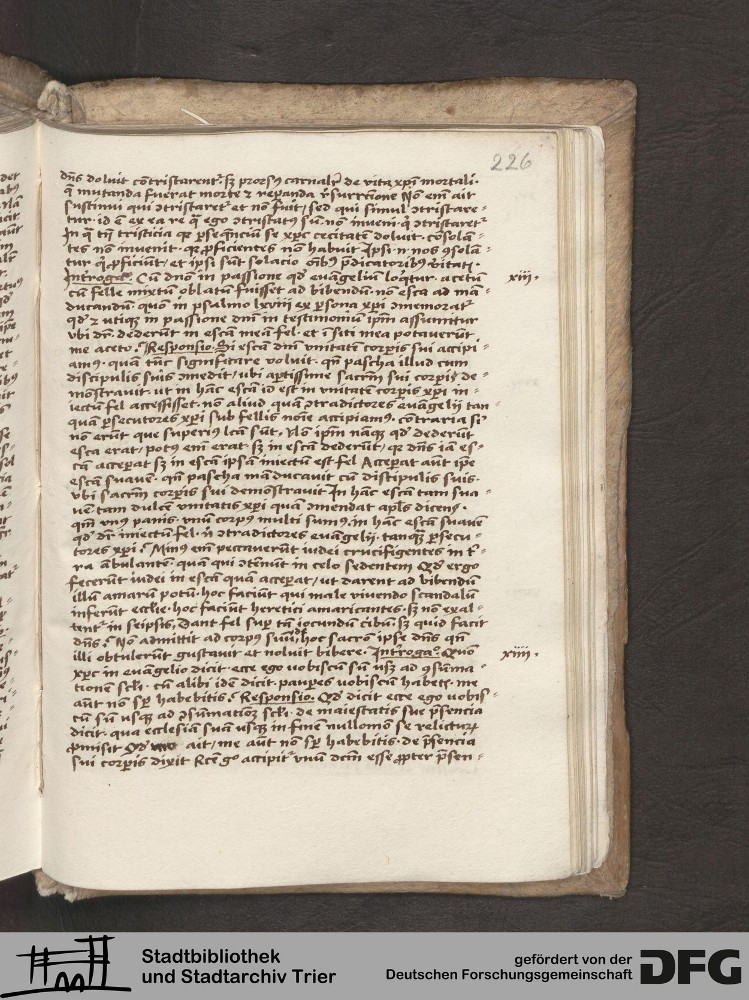 226
dn̄s doluit cōtristarentᷣ. sꝫ prorsꝰ carnalr̄ de vita xp̄i mortali.
q̄ mutanda fuerat morte ⁊ repanda r̄surrectione Nō em̄ ait
sustinui qui ɔtristaretᷣ et nō fuit / sed qui simul ɔtristare⸗
tur. id ē ex ea re q̄ ego ɔtristatꝰ sū nō inueni. q̄ ɔtristaretᷣ
In q̄ tn̄ tristicia qꝛ ꝑseqn̄ciū se xp̄c cecitatē doluit. cōsolā⸗
tes nō inuenit. qꝛ ꝓficientes nō habuit Ipsi .n. nos ꝯsolā⸗
tur q̄ ꝓficiūt / et ipsi sūt solacio oībꝰ p̄dicatoribꝰ v̄itatꝭ.
Introga. Cū dn̄o in passione qd̄ euāgeliū loqͥtur. acetū xiii.
cū felle mixtū oblatū fuisset ad bibendū. nō esca ad mā⸗
ducandū. quō in psalmo lxviii ex ꝑsona xp̄i ɔmemoratᷣ
qd̄ ⁊ utiqꝫ in passione dn̄i in testimoniū ip̄m assumitur
vbi dr̄. dederūt in escā meā fel. et ī siti mea potauerūt
me aceto. Responsio. Si escā dn̄i vnitatē corꝑis sui accipi⸗
amꝰ. quā tūc significare voluit. qn̄ pascha illud cum
discipulis suis ɔmedit / ubi aꝑtissime sacrm̄ sui corꝑis de⸗
mōstrauit. ut in hāc escā id est in vnitatē corꝑis xp̄i in⸗
iectū fel accessisset. nō aliud quā ɔtradictores euāgelij tan⸗
quā ꝑsecutores xp̄i sub fellis noīe accipiamꝰ. cōtraria siᷣ
nō erūt que superiꝰ lc̄a sūt. Nō ip̄m nāqꝫ qd̄ dederūt
esca erat / potꝰ em̄ erat. sꝫ in escā dederūt / qꝛ dn̄s iā es⸗
cā acceꝑat sꝫ in escā ipsā iniectū est fel Acceꝑat aūt ip̄e
escā suauē. qn̄ pascha māducauit cū discipulis suis.
vbi sacrm̄ corꝑis sui demōstrauit In hāc escā tam sua⸗
uē tam dulcē vnitatis xp̄i quā ɔmendat apl̄s dicens.
qm̄ vnꝰ panis. vnū corpꝰ multi sumꝰ. in hāc escā suauē
qd̄ dr̄ iniectū fel. n̄ ɔtradictores euāgelij. tanqꝫ ꝑsecu⸗
tores xp̄i. Minꝰ em̄ peccauerūt iudei crucifigentes in tᷣ⸗
ra ābulantē quā qui ɔtēnūt in celo sedentem Qd̄ ergo
fecerūt iudei in escā quā acceꝑat / ut darent ad bibendū
illū amarū potū. hoc faciūt qui male viuendo scandalū
inferūt eccl̄ie. hoc faciūt heretici amaricantes. sꝫ nō exal⸗
tentᷣ in seipsis. Dant fel suꝑ tā iocundū cibū. sꝫ quid facit
dn̄s. Nō admittit ad corpꝰ suū. hoc sacrō ipse dn̄s qn̄
illi obtulerūt gustauit et noluit bibere. Introga. Quō xiiii.
xp̄c in euāgelio dicit. ecce ego vobiscū sū usqꝫ ad ꝯsūma⸗
tionē sc̄li. cū alibi idē dicit. pauꝑes vobiscū habetꝭ. me
aūt nō sꝑ habebitis. Responsio. Qd̄ dicit ecce ego vobis⸗
cū sū usqꝫ ad ɔsūmatiōꝫ sc̄li. de maiestatis sue p̄sencia
dicit. qua ecclesiā suā usqꝫ in finē nullomō se relicturꝝ
ꝓmisit Qd̄ ait / me aūt nō sꝑ habebitis. de p̄sencia
sui corꝑis dixit Rc̄e gͦ accipitᷣ vnū dcm̄ esse ꝓpter p̄sen⸗
Stadtbibliothek
und Stadtarchiv Trier
gefördert von der
Deutschen Forschungsgemeinschaft
DFG